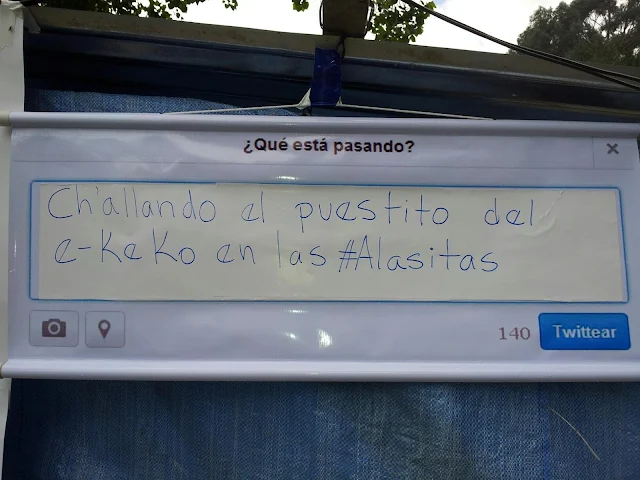 ¿Qué está pasando?
×
Ch'allando el puestito del
e-KeKo en las #Alasitas
140 Twittear